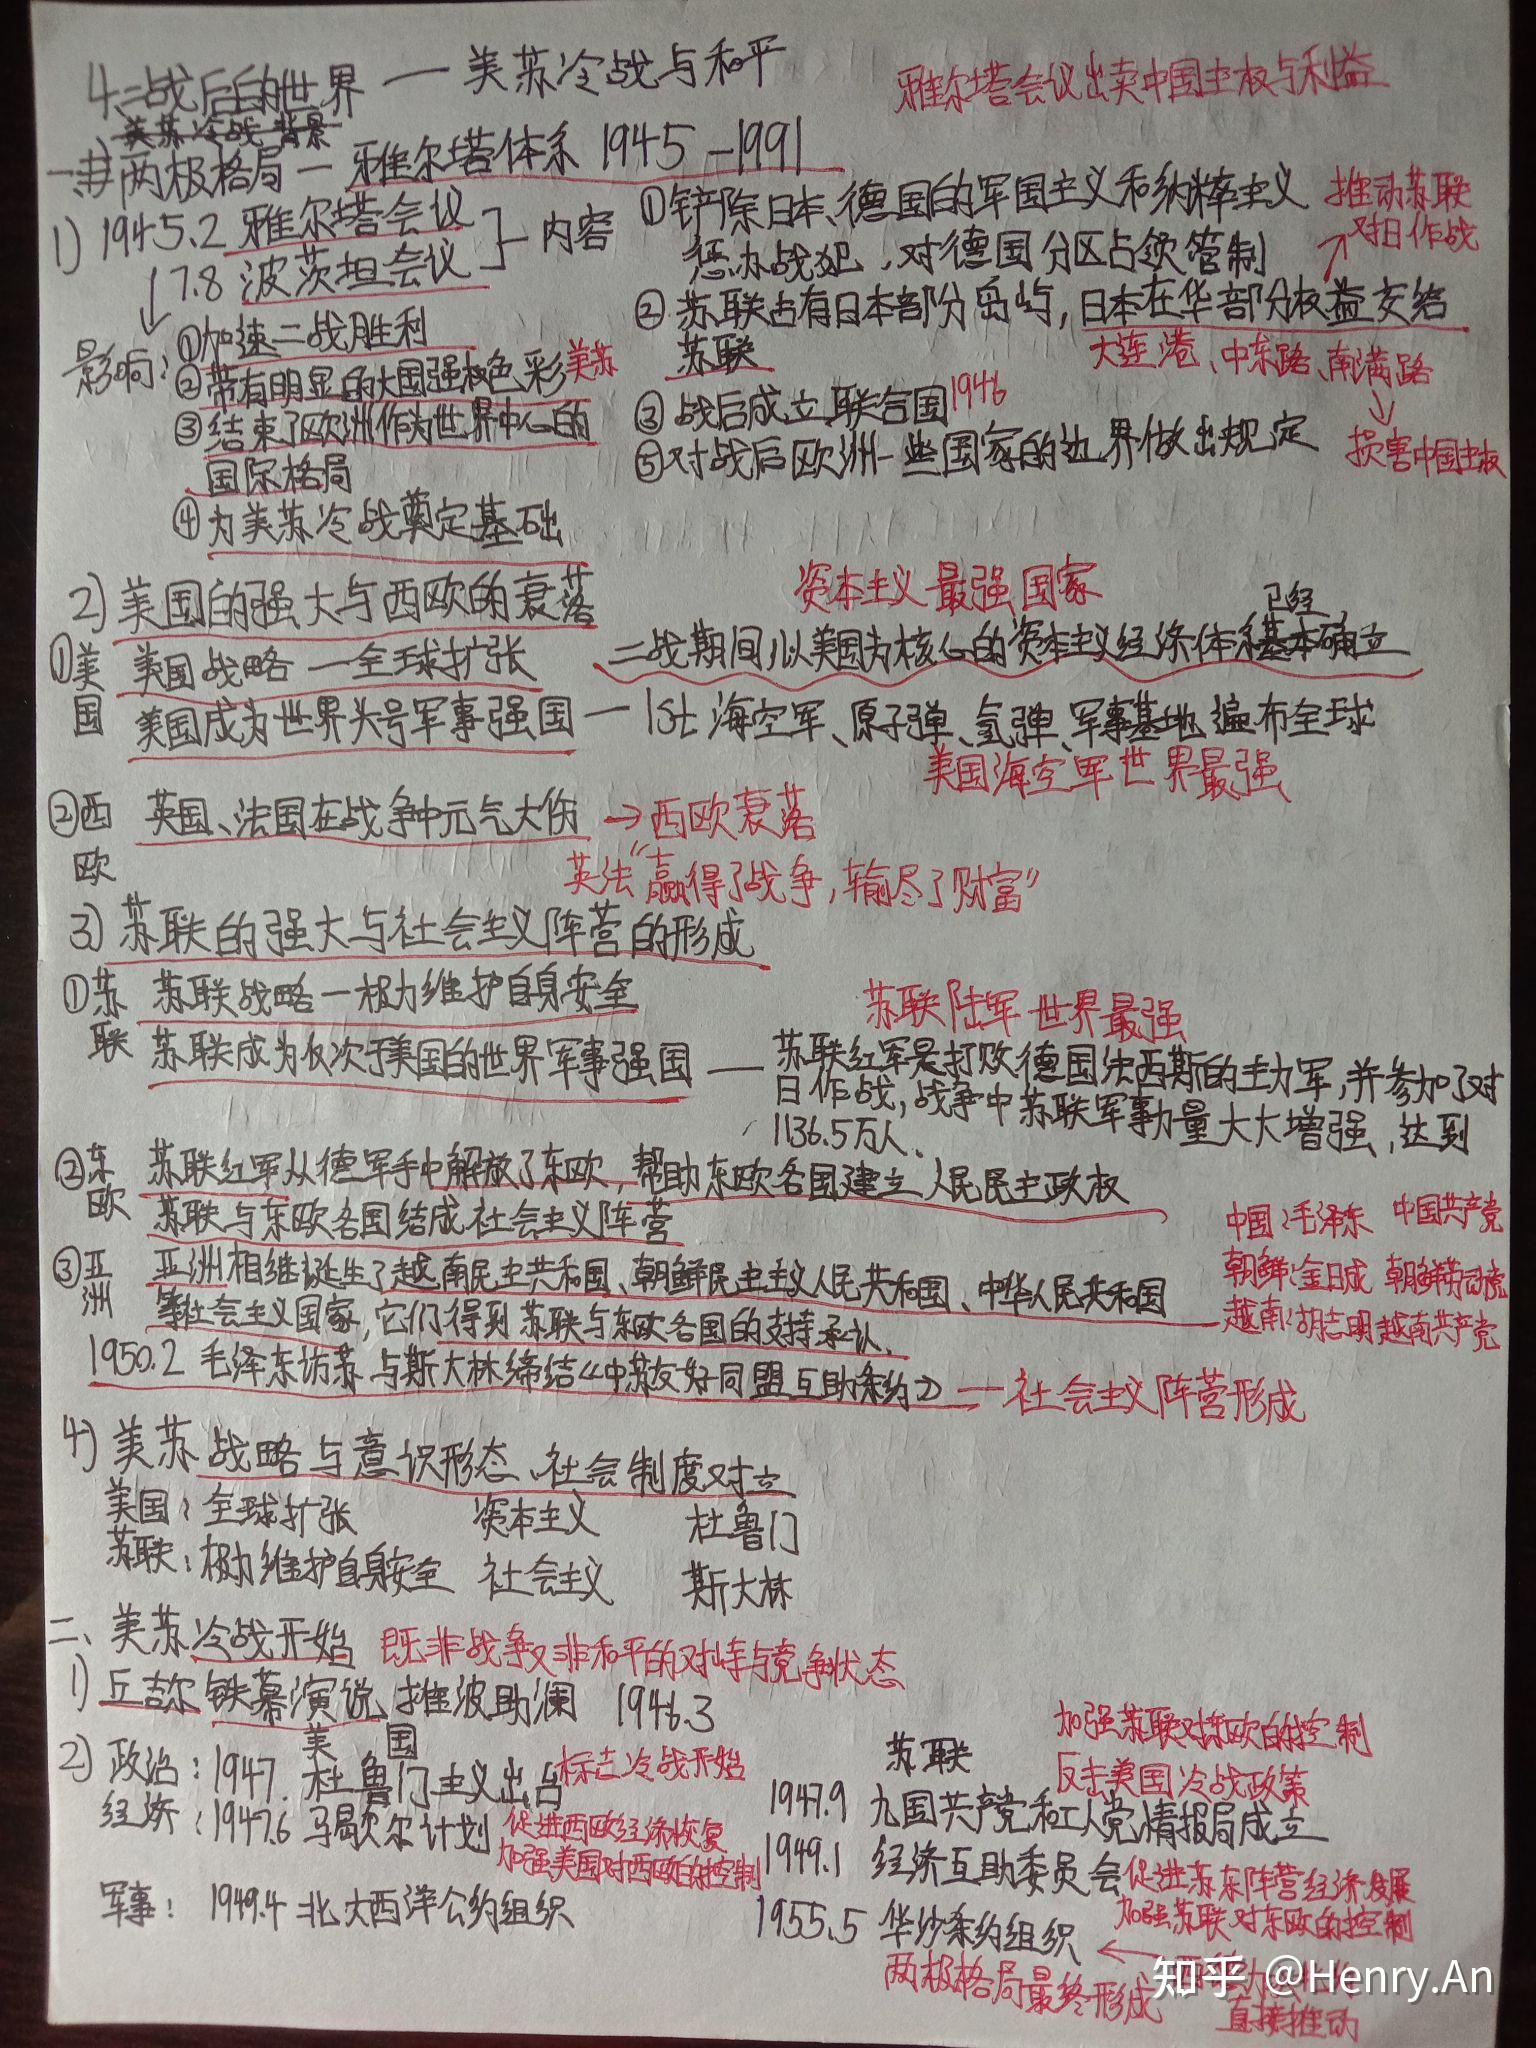 4、二战后的世界 — 美苏冷战与和平
雅尔塔会议出卖中国主权与利益
美苏冷战背景
一、两极格局 — 雅尔塔体系 1945-1991
1) 1945.2 雅尔塔会议
7.8 波茨坦会议
内容
①铲除日本、德国的军国主义和纳粹主义
惩办战犯,对德国分区占领管制
推动苏联
对日作战
②苏联占有日本部分岛屿,日本在华部分权益交给
苏联
大连港、中东路、南满路
损害中国主权
③战后成立联合国 1946
⑤对战后欧洲一些国家的边界做出规定
影响:①加速二战胜利
②带有明显的大国强权色彩 美苏
③结束了欧洲作为世界中心的
国际格局
④为美苏冷战奠定基础
2) 美国的强大与西欧的衰落
资本主义最强国家
①美国 美国战略—全球扩张
二战期间,以美国为核心的资本主义经济体系已经基本确立
美国成为世界头号军事强国 — 1st 海空军、原子弹、氢弹、军事基地遍布全球
美国海空军世界最强
②西欧 英国、法国在战争中元气大伤 → 西欧衰落
英法“赢得了战争,输尽了财富”
3) 苏联的强大与社会主义阵营的形成
①苏联 苏联战略—极力维护自身安全
苏联陆军世界最强
苏联成为仅次于美国的世界军事强国 — 苏联红军是打败德国法西斯的主力军,并参加了对
日作战,战争中苏联军事力量大大增强,达到
1136.5万人、
②东欧 苏联红军从德军手中解放了东欧,帮助东欧各国建立人民民主政权
苏联与东欧各国结成社会主义阵营
③亚洲 亚洲相继诞生了越南民主共和国、朝鲜民主主义人民共和国、中华人民共和国
等社会主义国家,它们得到苏联与东欧各国的支持承认、
中国:毛泽东 中国共产党
朝鲜:金日成 朝鲜劳动党
越南:胡志明 越南共产党
1950.2 毛泽东访苏与斯大林缔结《中苏友好同盟互助条约》 — 社会主义阵营形成
4) 美苏战略与意识形态、社会制度对立
美国:全球扩张 资本主义 杜鲁门
苏联:极力维护自身安全 社会主义 斯大林
二、美苏冷战开始 既非战争又非和平的对峙与竞争状态
1) 丘吉尔铁幕演说 推波助澜 1946.3
美国
苏联
加强苏联对东欧的控制
反击美国冷战政策
2) 政治:1947. 杜鲁门主义出台 标志冷战开始
1947.9 九国共产党和工人党情报局成立
经济:1947.6 马歇尔计划 促进西欧经济恢复
加强美国对西欧的控制
1949.1 经济互助委员会 促进苏东阵营经济发展
加强苏联对东欧的控制
军事:1949.4 北大西洋公约组织
1955.5 华沙条约组织
两极格局最终形成
直接推动
知乎 @Henry.An